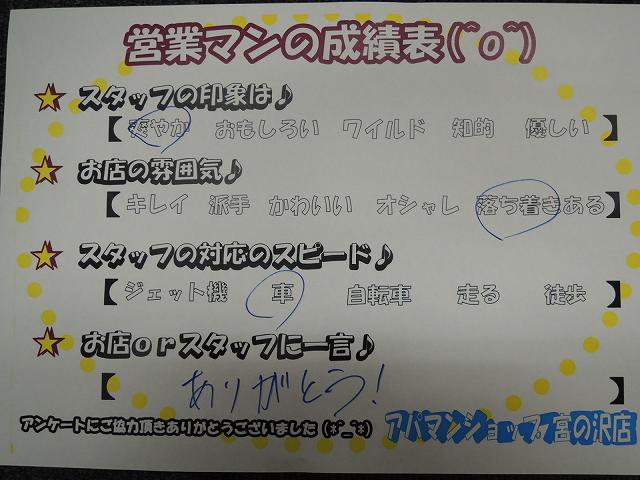 営業マンの成績表(^o^)
スタッフの印象は♪
【爽やか おもしろい ワイルド 知的 優しい】
お店の雰囲気♪
【キレイ 派手 かわいい オシャレ 落ち着きある】
スタッフの対応のスピード♪
【ジェット機 車 自転車 走る 徒歩】
お店orスタッフに一言♪
【ありがとう!】
アンケートにご協力頂きありがとうございました(*^_^*) アパマンショップ宮の沢店